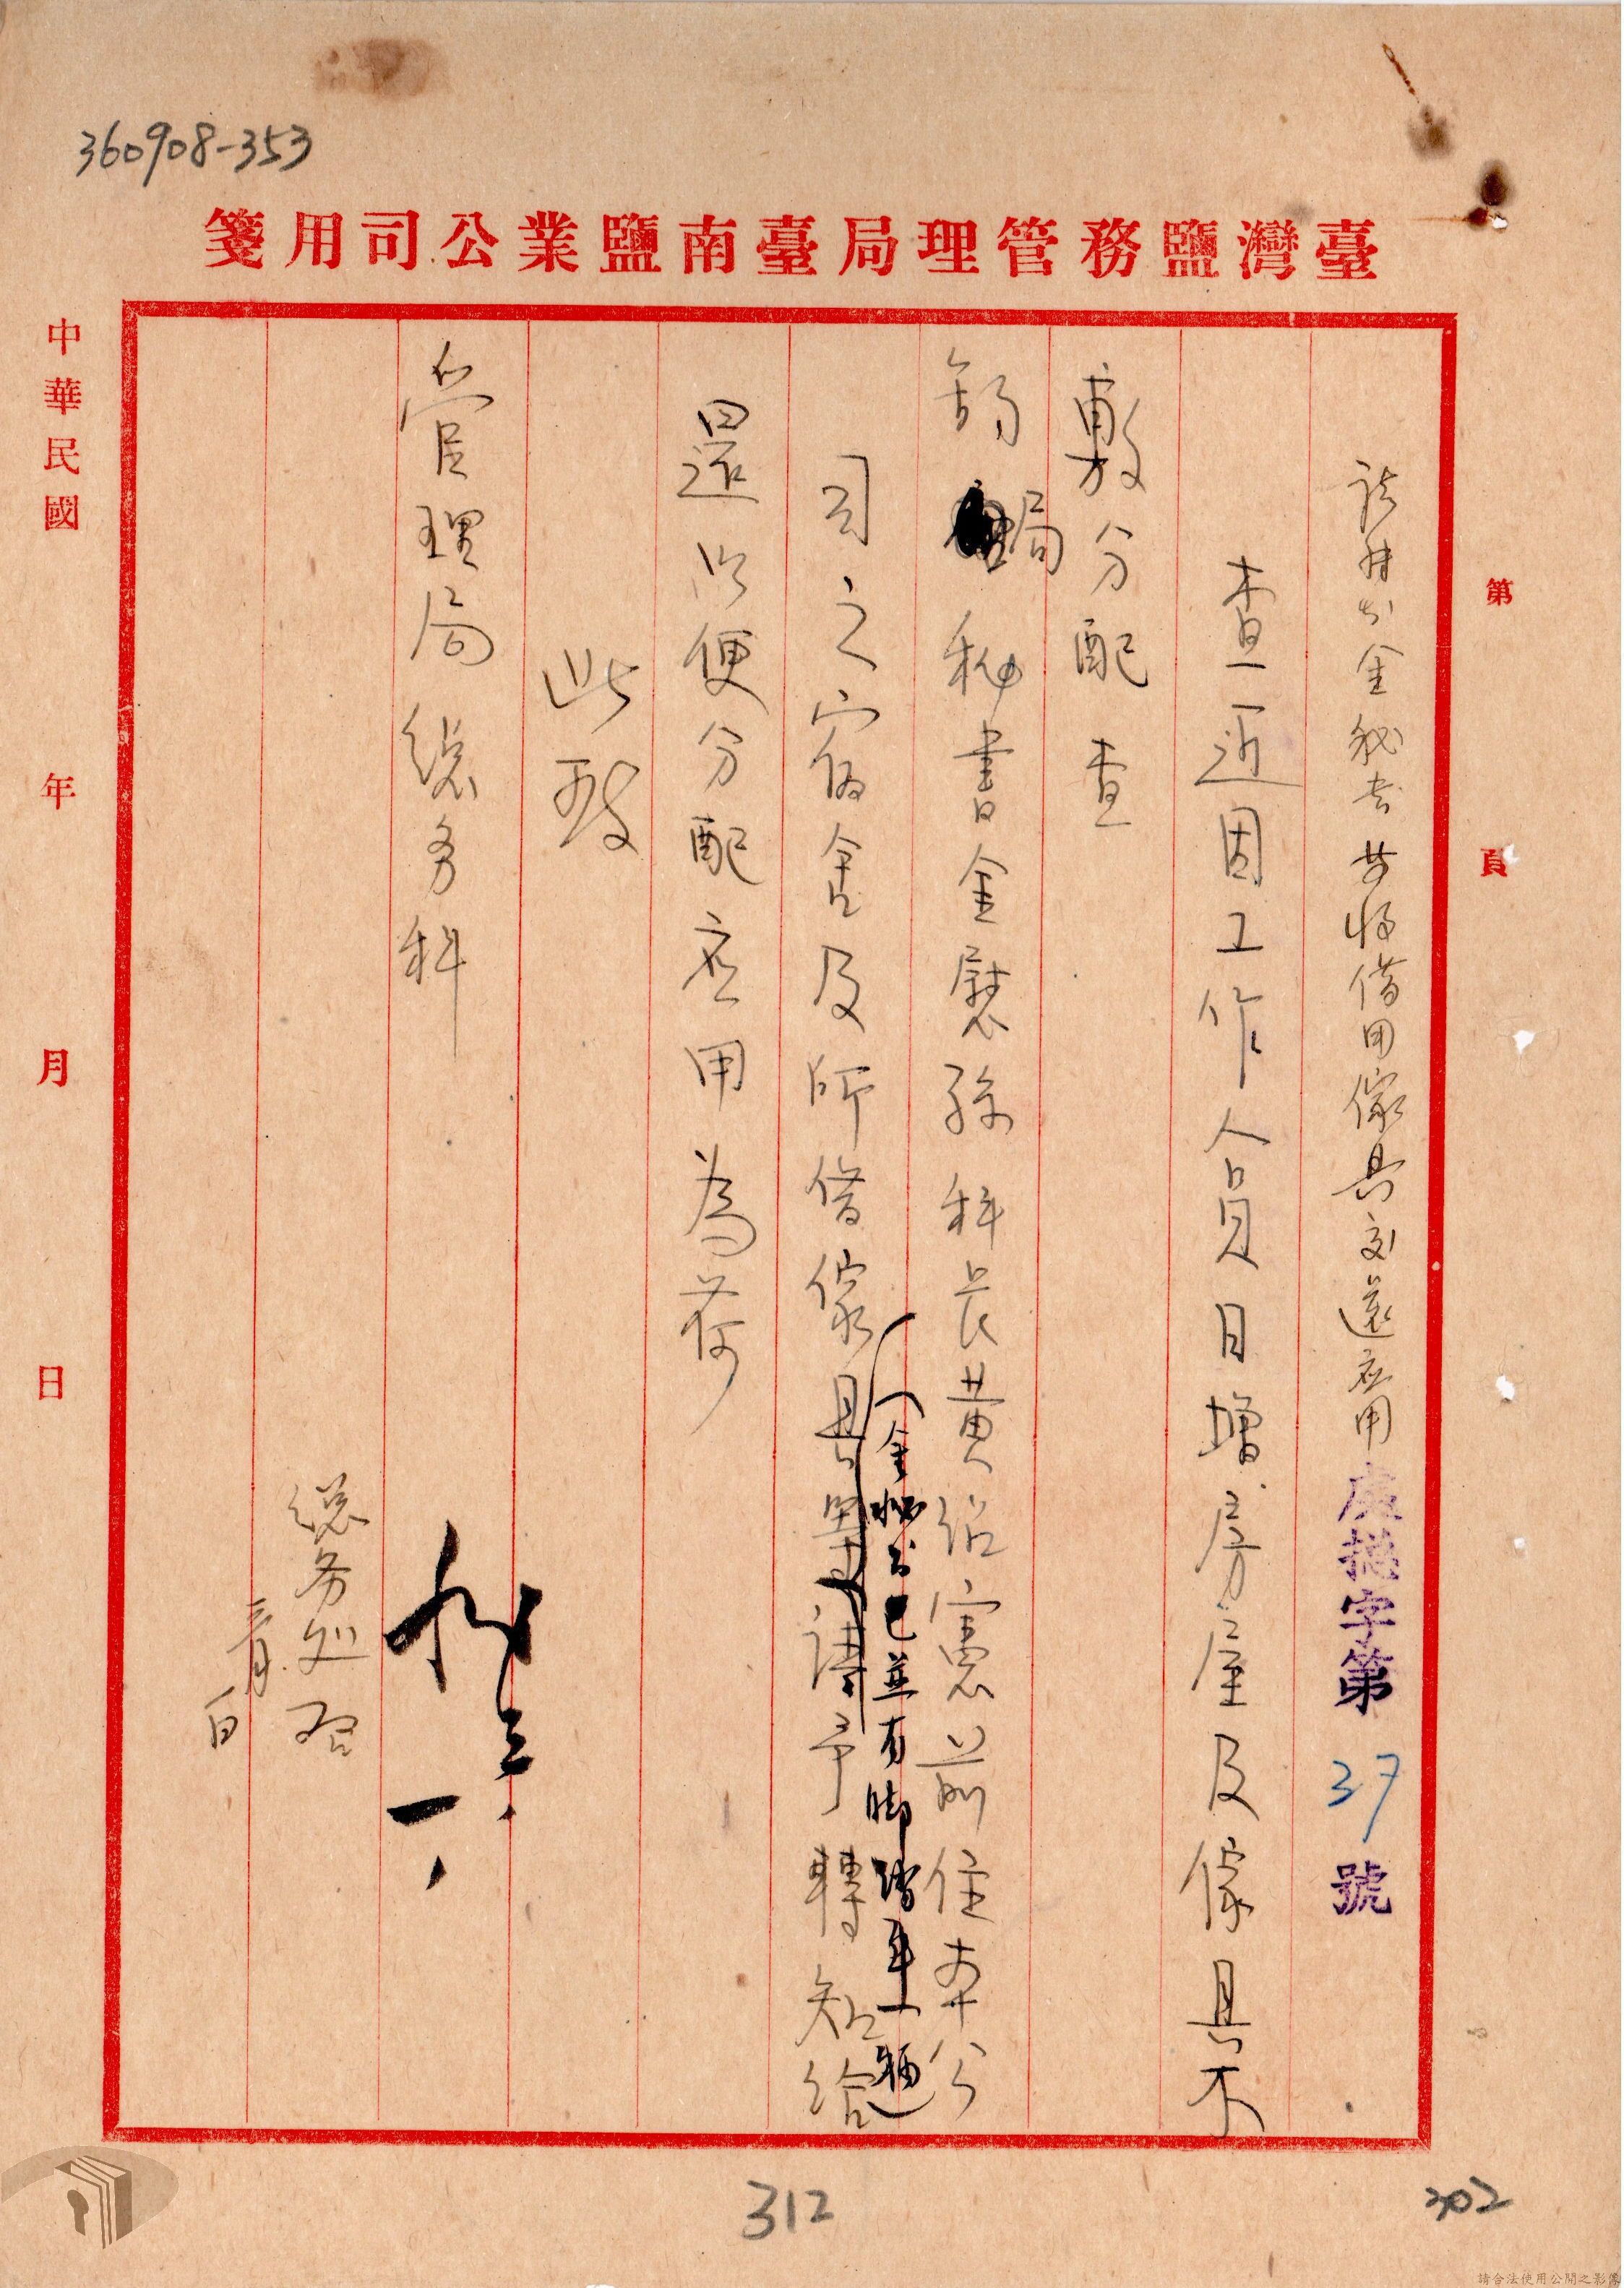 360908-353
臺灣鹽務管理局臺南鹽業公司用箋
第 頁
請轉知金秘書等將借用傢具交還應用
處總字第37號
查近因工作人員日增房屋及傢具不
敷分配查
鈞局秘書金慰孫科長黃紹憲前住本公
司之宿舍及所借傢具請予轉知給
(金秘書已並有脚踏車一輛)
還以便分配應用為荷
此致
管理局總务科
三、一、
總务处启
中華民國 年 月 日
312
302
請合法使用公開之影像